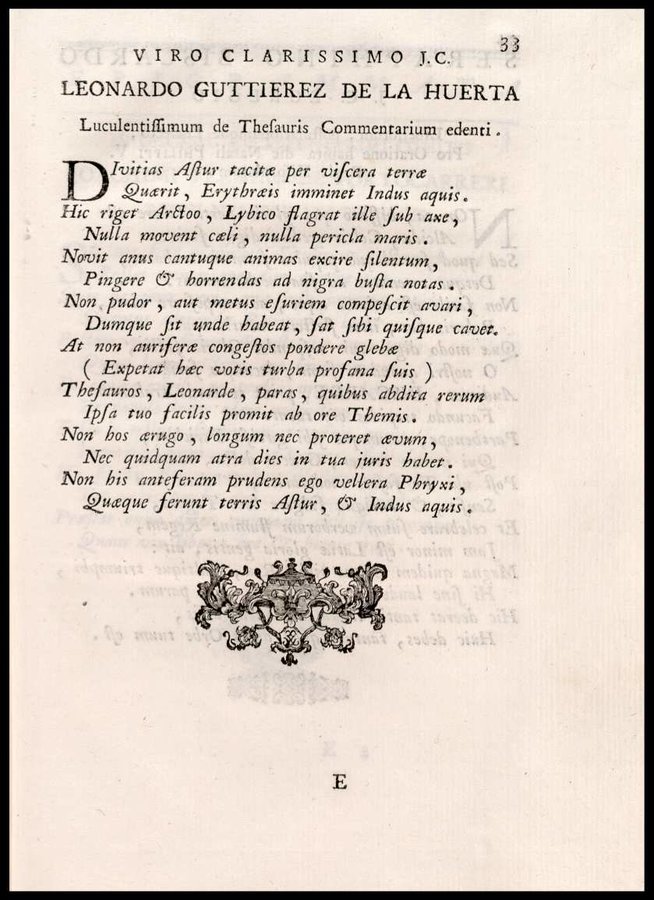 33
VIRO CLARISSIMO J.C.
LEONARDO GUTTIEREZ DE LA HUERTA
Luculentiſſimum de Theſauris Commentarium edenti.
DIvitias Aſtur tacitæ per viſcera terræ
Quærit, Erythræis imminet Indus aquis.
Hic riget Arctoo, Lybico flagrat ille ſub axe,
Nulla movent cæli, nulla pericla maris.
Novit anus cantuque animas excire ſilentum,
Pingere & horrendas ad nigra buſta notas.
Non pudor, aut metus eſuriem compeſcit avari,
Dumque ſit unde habeat, ſat ſibi quiſque cavet.
At non auriferæ congeſtos pondere glebæ
( Expetat hæc votis turba profana ſuis )
Theſauros, Leonarde, paras, quibus abdita rerum
Ipſa tuo facilis promit ab ore Themis.
Non hos ærugo, longum nec proteret ævum,
Nec quidquam atra dies in tua juris habet.
Non his anteferam prudens ego vellera Phryxi,
Quæque ferunt terris Aſtur, & Indus aquis.
E